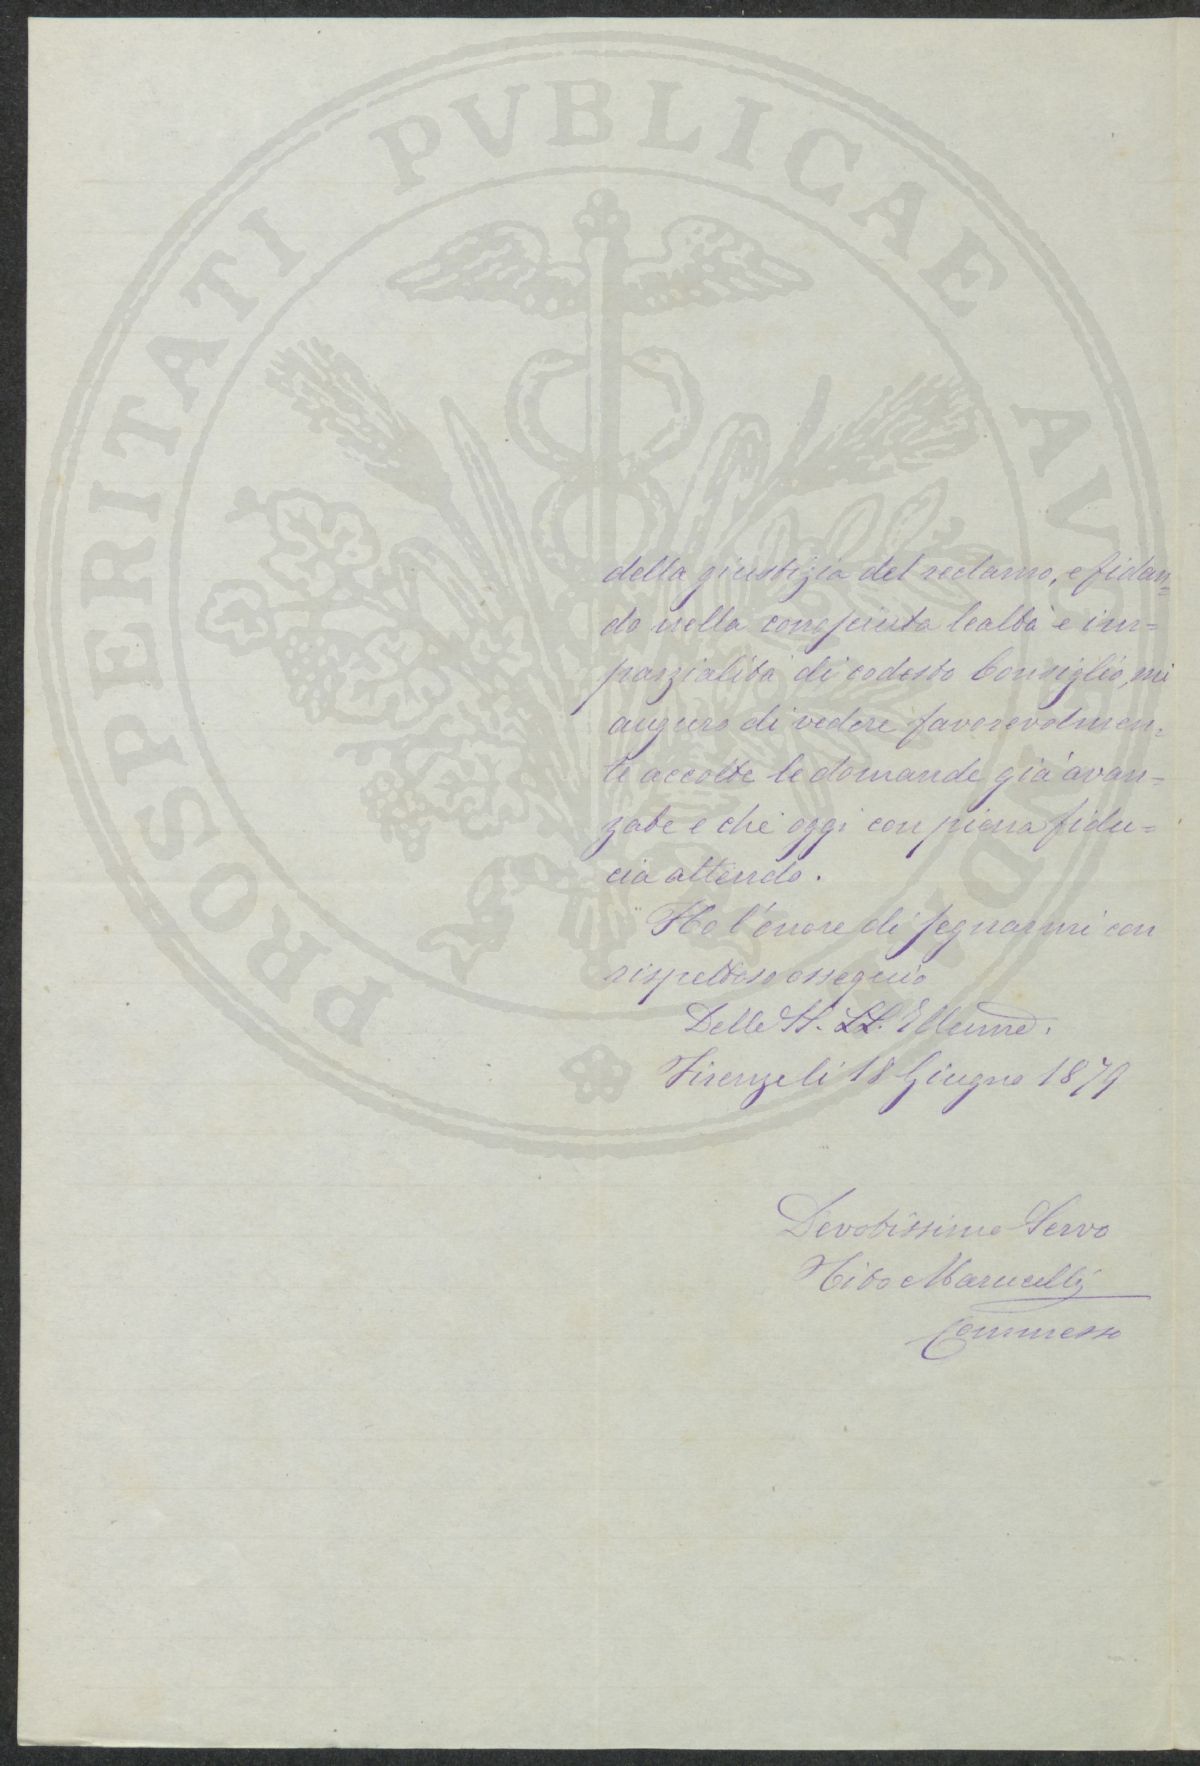 PROSPERITATI PVBLICAE AVGENDAE
della giustizia del reclamo, e fidan=
do nella conosciuta lealtà e im=
parzialità di codesto Consiglio, mi
auguro di vedere favorevolmen=
te accolte le domande già avan=
zate e che oggi con piena fidu=
cia attendo.
Ho l'onore di segnarmi con
rispettoso ossequio
Delle SS. LL. Illume.
Firenze li 18 Giugno 1879
Devotissimo Servo
Tito Marucelli
Commesso